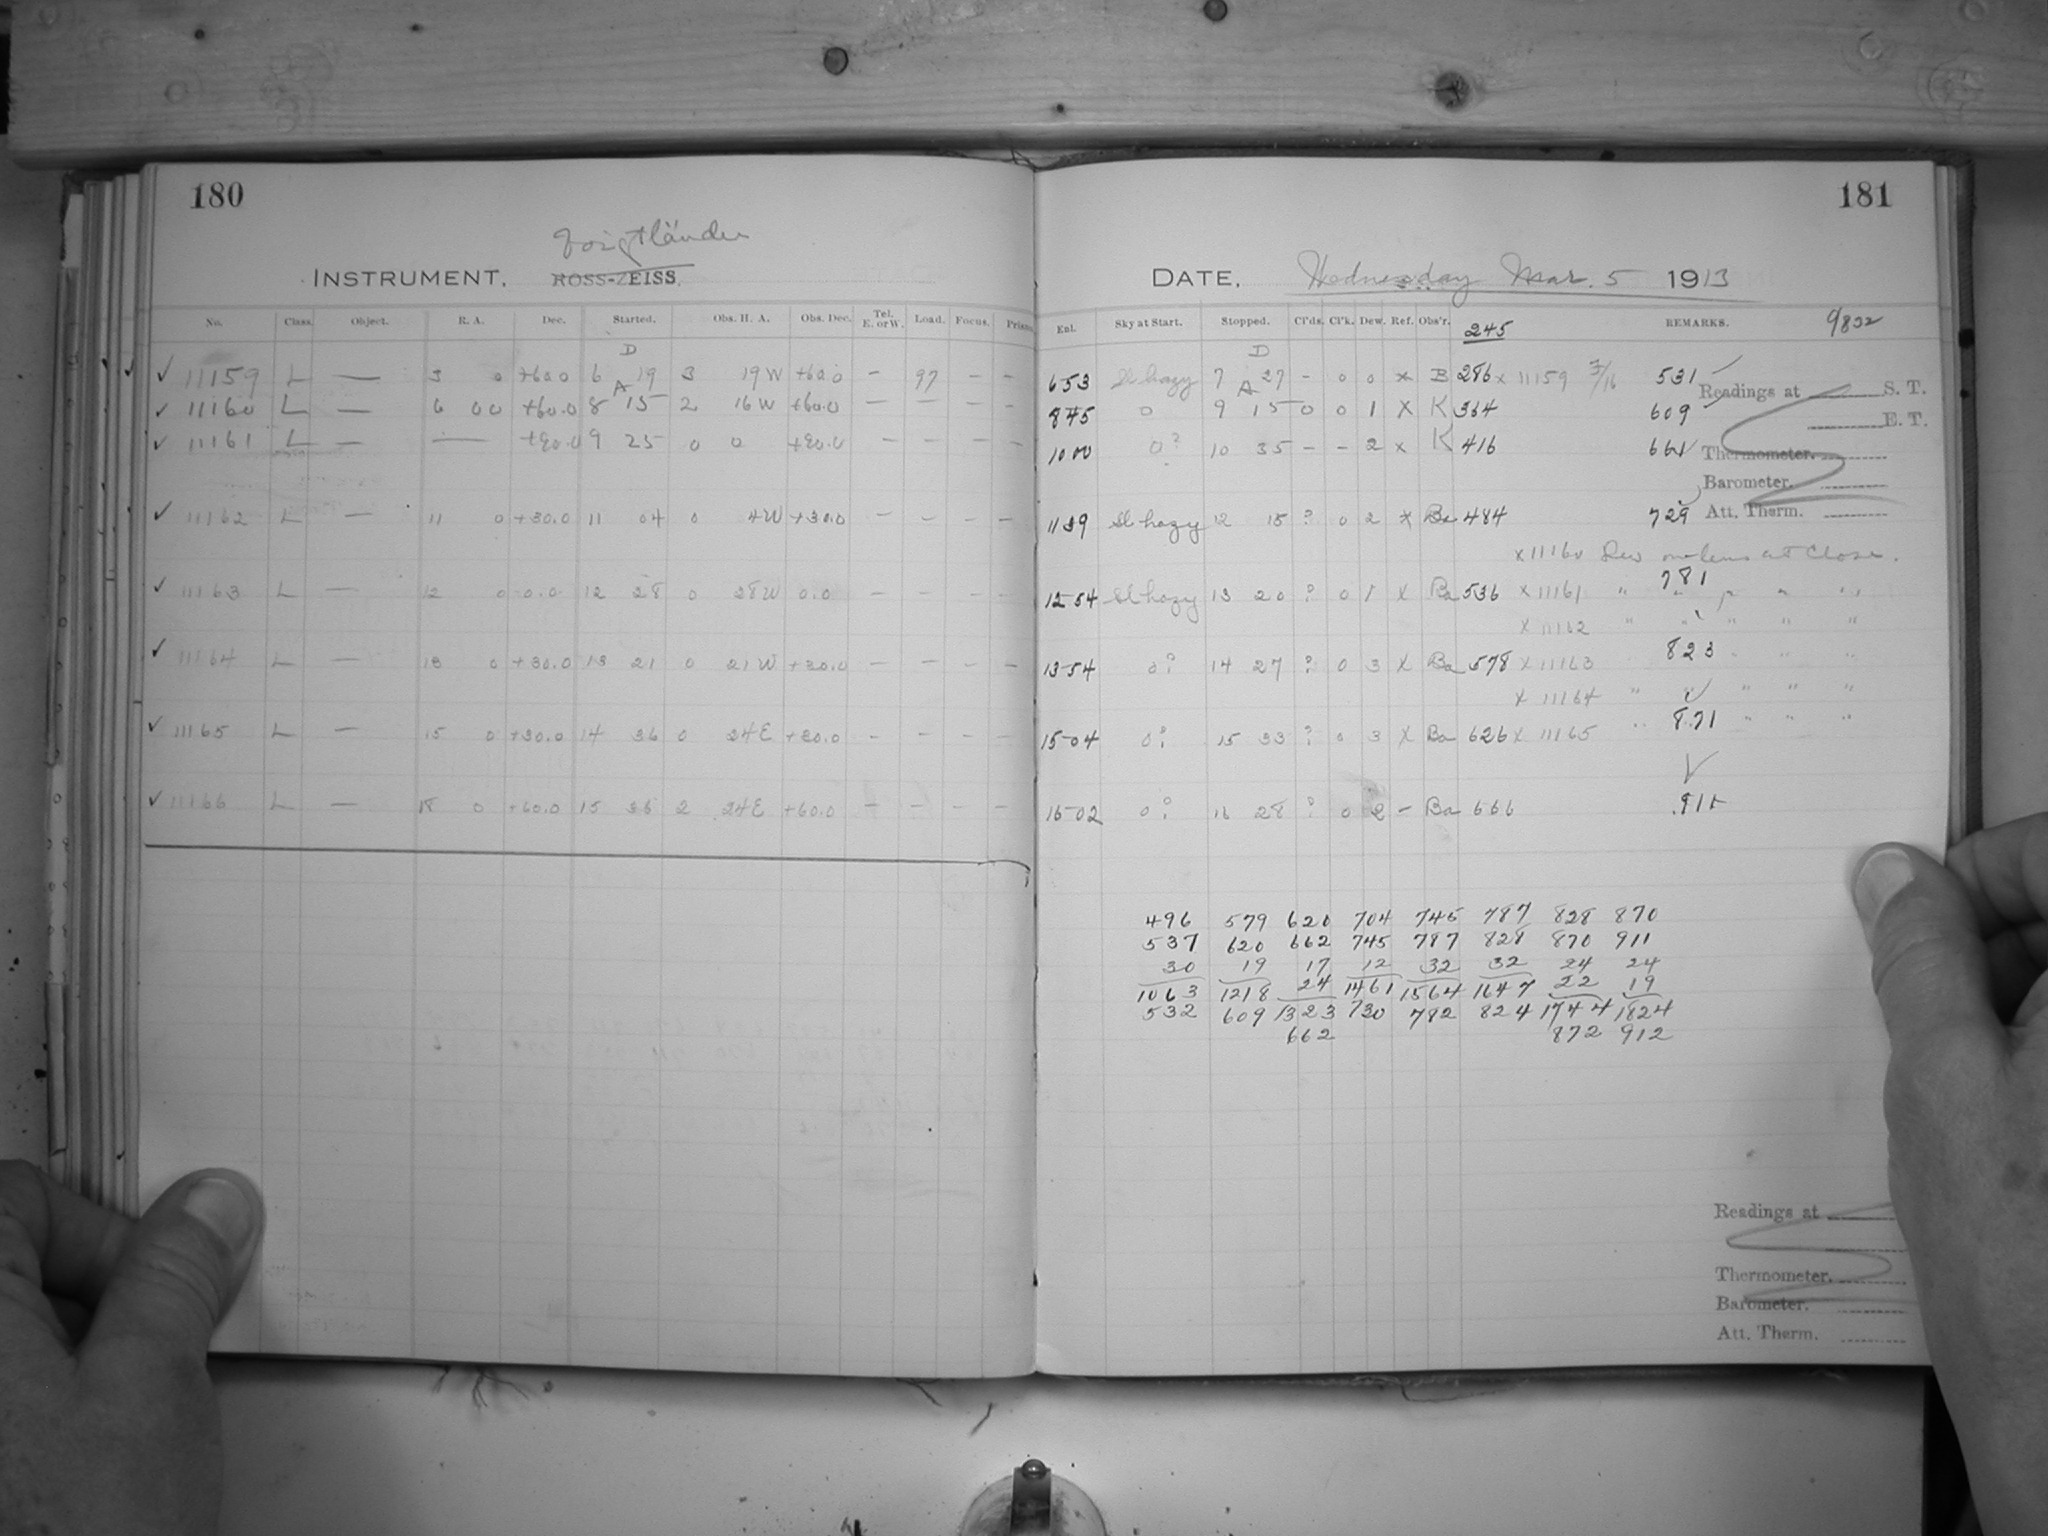 180
Voigtländer
INSTRUMENT. ROSS-ZEISS.
No. Class. Object. R. A. Dec. Started. Obs. H. A. Obs. Dec. Tel. E. or W. Load. Focus. Prism.
D
✓ 11159 L — 3 0 +60.0 6 A 19 3 19W +60.0 — 97 — —
✓ 11160 L — 6 00 +60.0 8 15 2 16W +60.0 — — — —
✓ 11161 L — — 9 25 0 0 — — — —
✓ 11162 L — 11 0 +30.0 11 04 0 4W +30.0 — — — —
✓ 11163 L — 12 0 0.0 12 28 0 28W 0.0 — — — —
✓ 11164 L — 13 0 +30.0 13 21 0 21W +30.0 — — — —
✓ 11165 L — 15 0 +30.0 14 36 0 24E +30.0 — — — —
✓ 11166 L — 18 0 +60.0 15 36 2 24E +60.0 — — — —
181
DATE. Wednesday Mar. 5 1913
Enl. Sky at Start. Stopped. Cl'ds. Cl'k. Dew. Ref. Obs'r. 245 REMARKS. 9/832
D
653 Sl hazy 7 A 27 – 0 0 x B 286 x 11159 3/16 531 ✓
Readings at S. T.
845 0 9 15 0 0 1 X K 364 609 ✓
E. T.
1000 0? 10 35 – – 2 x K 416 661 ✓
Thermometer.
Barometer.
1139 Sl hazy 12 15 ? 0 2 x Ba 484 729 ✓
Att. Therm.
x 11160 Dew on lens at close.
1254 Sl hazy 13 20 ? 0 1 x Ba 536 x 11161 " 781 " " " "
x 11162 " " " " "
1354 0? 14 27 ? 0 3 X Ba 578 x 11163 823 " " "
x 11164 " ✓ " " "
1504 0? 15 33 ? 0 3 X Ba 626 x 11165 " 871 " " "
✓
1602 0? 16 28 ? 0 2 – Ba 666 911
496 579 620 704 745 787 828 870
537 620 662 745 787 828 870 911
30 19 17 12 32 32 24 24
1063 1218 24 1461 1564 1647 22 19
532 609 1323 730 782 824 1744 1824
662 872 912
Readings at
Thermometer.
Barometer.
Att. Therm.